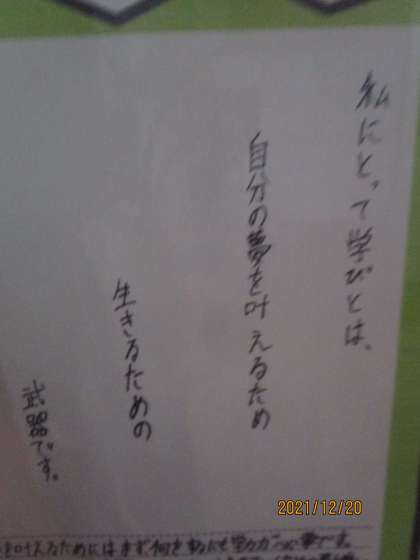 私にとって学びとは、
自分の夢を叶えるため
生きるための
武器です。
を叶えるためにはまず何を
2021/12/20